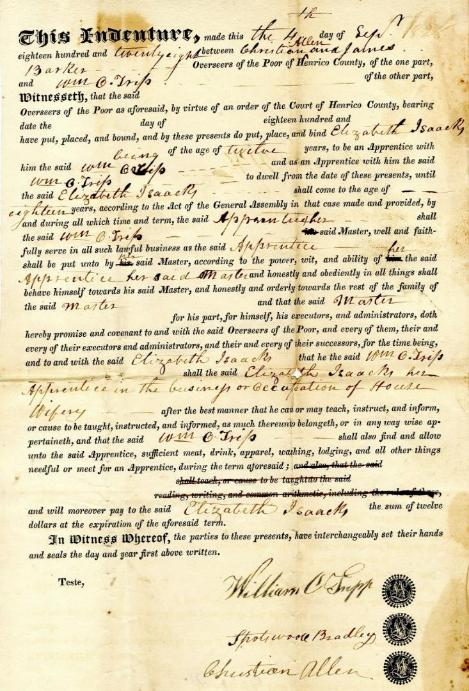 th
This Indenture, made this the 4 day of Sep.r
eighteen hundred and twentyeight between Christian Allen and James
Barker Overseers of the Poor of Henrico County, of the one part,
and Wm C. Tripp of the other part,
Witnesseth, that the said
Overseers of the Poor as aforesaid, by virtue of an order of the Court of Henrico County, bearing
date the day of eighteen hundred and
have put, placed, and bound, and by these presents do put, place, and bind Elizabeth Isaacks
being of the age of twelve years, to be an Apprentice with
him the said Wm C Tripp and as an Apprentice with him the said
Wm C. Tripp to dwell from the date of these presents, until
the said Elizabeth Isaacks shall come to the age of
eighteen years, according to the Act of the General Assembly in that case made and provided, by
and during all which time and term, the said Apprentice her shall
the said Wm C. Tripp said Master, well and faith-
fully serve in all such lawful business as the said Apprentice
shall be put unto by her his said Master, according to the power, wit, and ability of her him the said
Apprentice her said Master and honestly and obediently in all things shall
behave himself towards his said Master, and honestly and orderly towards the rest of the family of
the said Master and that the said Master
for his part, for himself, his executors, and administrators, doth
hereby promise and covenant to and with the said Overseers of the Poor, and every of them, their and
every of their executors and administrators, and their and every of their successors, for the time being,
and to and with the said Elizabeth Isaacks that he the said Wm C. Tripp
shall the said Elizabeth Isaacks her
Apprentice in the business or Occupation of House
Wifery after the best manner that he can or may teach, instruct, and inform,
or cause to be taught, instructed, and informed, as much thereunto belongeth, or in any wise ap-
pertaineth, and that the said Wm C. Tripp shall also find and allow
unto the said Apprentice, sufficient meat, drink, apparel, washing, lodging, and all other things
needful or meet for an Apprentice, during the term aforesaid; and also, that the said
shall teach, or cause to be taught do the said
reading, writing, and common arithmetic, including the rule of three,
and will moreover pay to the said Elizabeth Isaacks the sum of twelve
dollars at the expiration of the aforesaid term.
In Witness Whereof, the parties to these presents, have interchangeably set their hands
and seals the day and year first above written.
Teste,
William C Tripp
Spotswood Bradley
Christian Allen